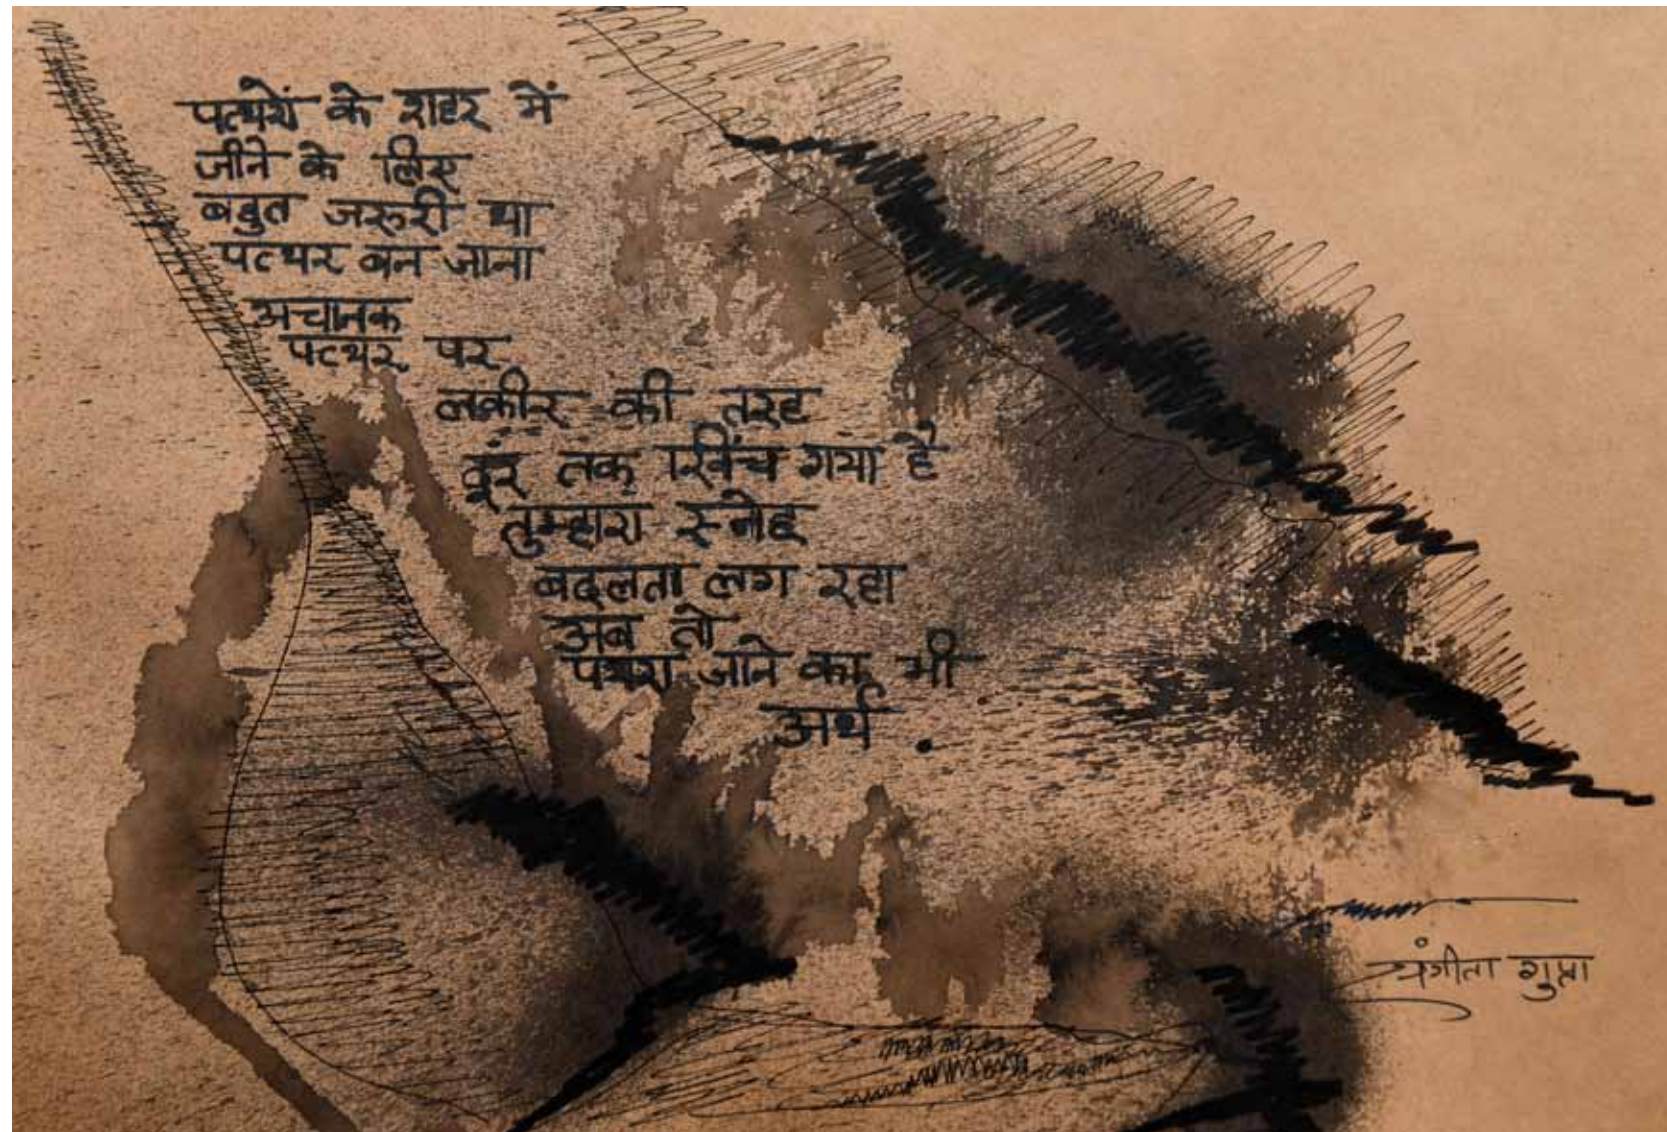 पत्थरों के शहर में
जीने के लिए
बहुत जरूरी था
पत्थर बन जाना
अचानक
पत्थर पर
लकीर की तरह
दूर तक खिंच गया है
तुम्हारा स्नेह
बदलता लग रहा
अब तो
पथरा जाने का भी
अर्थ .
संगीता गुप्ता